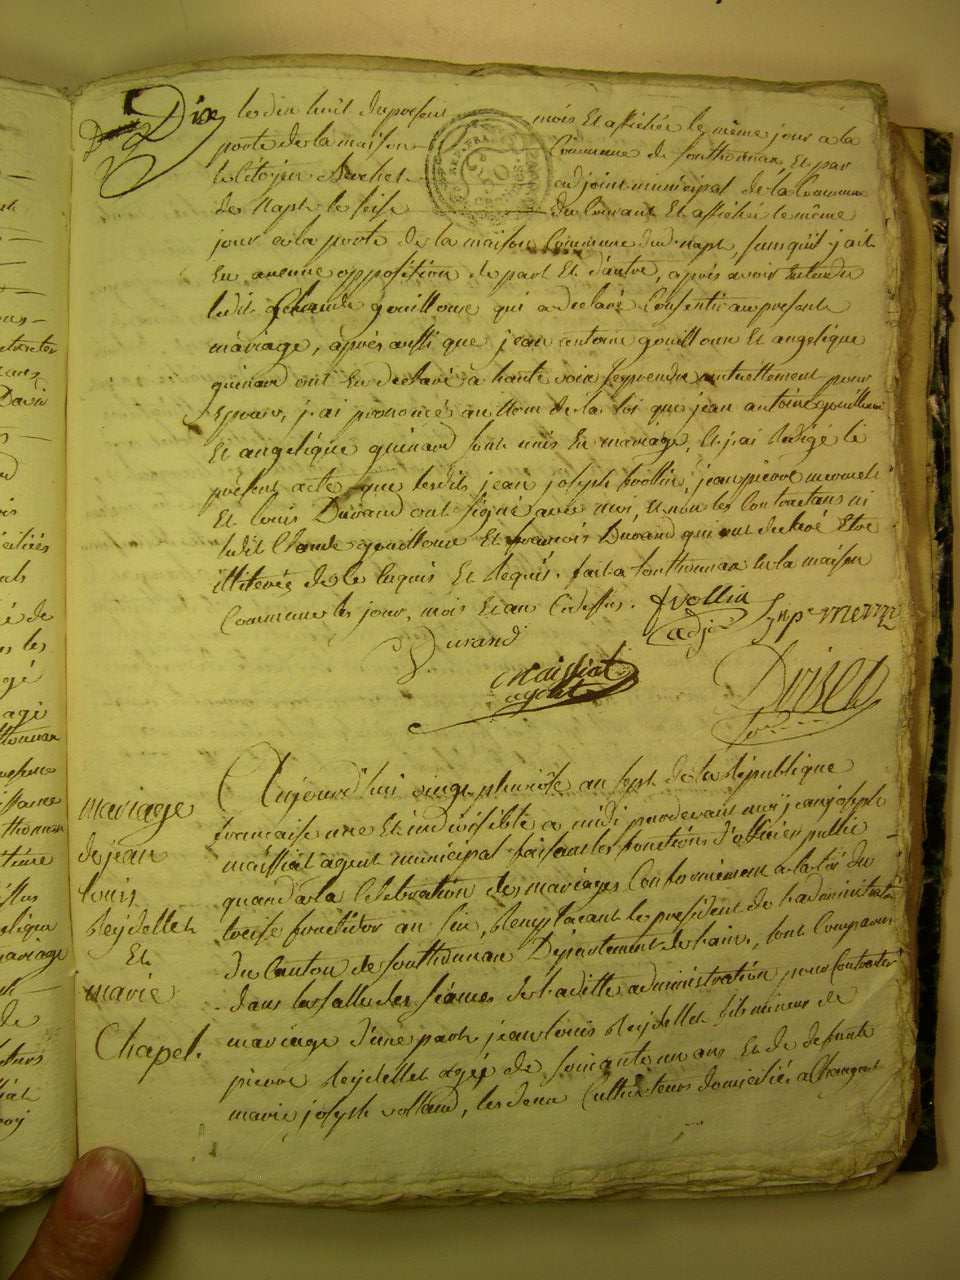 Dix
le dix huit du present mois Et affichée le même jour à la
porte de la maison Commune de Sonthonnax, Et par
le Citoyen adjoint municipal de la Commune
de Napt le seise du Courant Et affichée le même
jour a la porte de la maison Commune dud. napt, sans qu'il y ait
Eu aucune opposition de part Et d'autre, après avoir Entendu
ledit Claude gouilloux qui a declaré Consentir au present
màriage, àprès aussi que jean antoine gouilloux Et angelique
guinard ont Eu declaré à haute voix se prendre mutuellement pour
Epoux, j'ai prononcé au Nom de la loi que jean antoine gouilloux
Et angelique guinard sont unis En mariage, Et j'ai Redigé le
présent acte que lesdits jean joseph Vollin, jean pierre
Et louis Durand ont signé avec moi, Et non les Contractans ni
ledit Claude gouilloux Et francois Durand qui ont declaré Etre
illiterés de ce Enquis Et Requis. fait a Sonthonnax En la maison
Commune les jour, mois Et an Cidessus.
Jvollin
adj.
Durand
Maissiat
agent
mariage
de jean
louis
Reydellet
Et
marie
Chapel.
Aujourd'hui vingt pluviôse an sept de la République
francaise une Et indivisible a midi pardevant moi jean joseph
maissiat agent municipal faisant les fonctions d'officier public
quand à la Celebration des mariages Conformément a la loi du
treise fructidor an six, Remplacant le président de l'administration
du Canton de Sonthonnax Département de l'ain, sont Comparus
dans la salle des séances de laditte administration pour Contracter
mariage d'une part jean louis Reydellet fils mineur de
pierre Reydellet agé de soixante un ans Et de defunte
marie joseph volland, les deux Cultivateurs domiciliés a